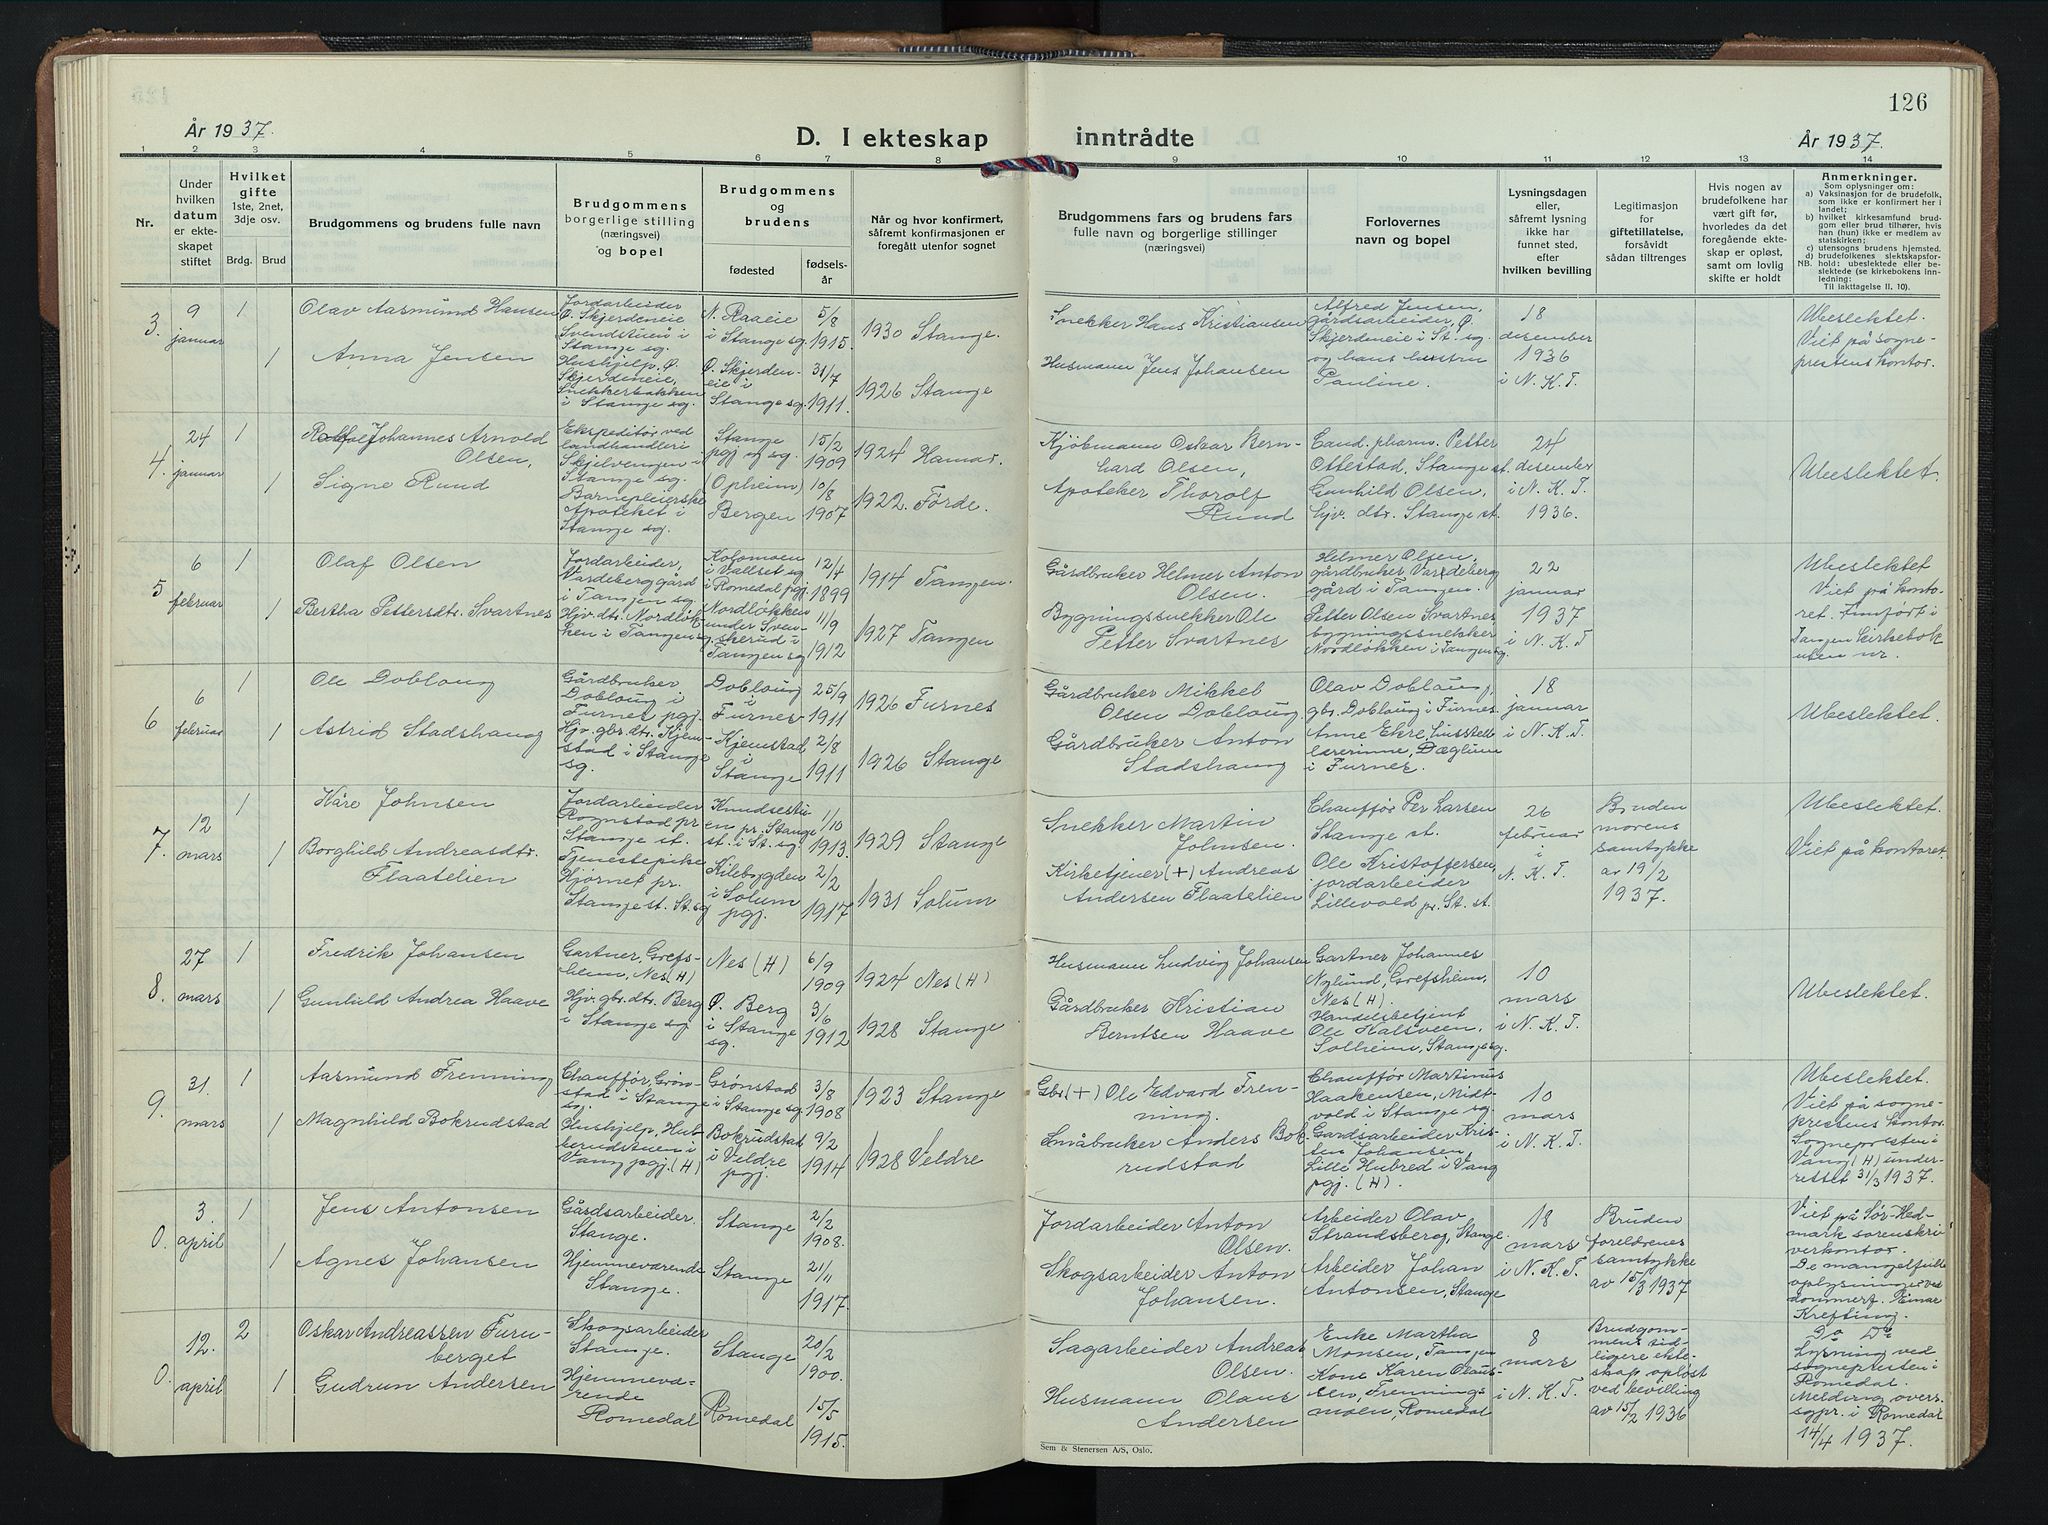 126
År 1937.
D. I ekteskap inntrådte
År 1937.
1 2 3 4 5 6 7 8 9 10 11 12 13 14
Nr.
Under
hvilken
datum
er ekte-
skapet
stiftet
Hvilket
gifte
1ste, 2net,
3dje osv.
Brdg. Brud
Brudgommens og brudens fulle navn
Brudgommens
borgerlige stilling
(næringsvei)
og bopel
Brudgommens
og
brudens
fødested
fødsels-
år
Når og hvor konfirmert,
såfremt konfirmasjonen er
foregått utenfor sognet
Brudgommens fars og brudens fars
fulle navn og borgerlige stillinger
(næringsvei)
Forlovernes
navn og bopel
Lysningsdagen
eller,
såfremt lysning
ikke har
funnet sted,
efter
hvilken bevilling
Legitimasjon
for
giftetillatelse,
forsåvidt
sådan tiltrenges
Hvis nogen av
brudefolkene har
vært gift før,
hvorledes da det
foregående ekte-
skap er opløst,
samt om lovlig
skifte er holdt
Anmerkninger.
Som oplysninger om:
a) Vaksinasjon for de brudefolk,
som ikke er konfirmert her i
landet;
b) hvilket kirkesamfund brud-
gom eller brud tilhører, hvis
han (hun) ikke er medlem av
statskirken;
c) utensogns brudens hjemsted.
d) brudefolkenes slektskapsfor-
NB. hold: ubeslektede eller be-
slektede (se kirkebokens inn-
ledning;
Til iakttagelse II, 10).
3.
9
januar
1
1
Olav Aasmund Hansen
Anna Jensen
Jordarbeider
Ø. Skjerdeneie
Svendstuen i
Stange sg.
Hushjelp, Ø.
Skjerdeneie,
Snekkerbakken
i Stange sg.
N. Raaeie
i Stange sg.
Ø. Skjerden-
eie i
Stange sg.
5/8
1915.
31/7
1911.
1930 Stange.
1926 Stange
Snekker Hans Kristiansen
Husmann Jens Johansen
Alfred Jensen,
gårdsarbeider, Ø.
Skjerdeneie i St. sg.
og hans hustru
Pauline.
18
desember
1936
i N. K. T.
Ubeslektet.
Viet på sogne-
prestens kontor.
4.
24
januar
1
1
Johannes Arnold
Olsen,
Signe Rund
Ekspeditør ved
landhandleri
Skjelvengen i
Stange sg.
Barnepleierske
Apoteket i
Stange sg.
Stange
pgj og sg.
(Opheim)
Bergen
15/2
1909
10/8
1907
1924 Hamar.
1922. Förde.
Kjøbmann Oskar Bern-
hard Olsen,
Apoteker Thorolf
Rund
Cand. pharm. Petter
Ottestad, Stange st.
Gunhild Olsen,
hjv. dtr. Stange st.
24
desember
i N. K. T.
1936.
Ubeslektet.
5
6
februar
1
1
Olaf Olsen
Bertha Pettersdtr. Svartnes
Jordarbeider,
Vardeberg gård
i Tangen sg.
Hjv. dtr. Nordløk-
ken i Tangen sg.
Kolomoen
i Vallset sg
i Romedal pgj.
Nordløkken
under Sven-
skerud i
Tangen sg
12/4
1899
11/9
1912
1914 Tangen.
1927 Tangen
Gårdbruker Helmer Anton
Olsen.
Bygningssnekker Ole
Petter Svartnes
Helmer Olsen,
gårdbruker Vardeberg
gård i Tangen.
Petter Olsen Svartnes
bygningssnekker
Nordløkken i Tangen sg.
22
januar
1937
i N. K. T.
Ubeslektet
Viet på konto-
ret. Innført i
Tangen kirkebok
uten nr.
6
6
februar
1
1
Ole Dobloug
Astrid Stadshaug
Gårdbruker
Dobloug i
Furnes pgj.
Hjv. gbr. dtr. Kjem-
stad i Stange
sg.
Dobloug
i
Furnes
Kjemstad
i
Stange
25/9
1911
2/8
1911
1926 Furnes
1926 Stange
Gårdbruker Mikkel
Olsen Dobloug
Gårdbruker Anton
Stadshaug
Olav Dobloug,
gbr. Dobloug i Furnes
Anne Ekre, husstell
lærerinne, Dæglum
i Furnes.
18
januar
i N. K. T.
Ubeslektet.
7.
12
mars
1
1
Kåre Johnsen
Borghild Andreasdtr.
Flaatelien
Jordarbeider
Rognstad pr
Stange st.
Tjenestepike
Hjørnet pr.
Stange st. St. sg
Knudsestu-
en pr. Stange
st. i St. sg.
Kilebygden
i Solum
pgj.
1/10
1913.
2/2
1917
1929 Stange
1931 Solum
Snekker Martin
Johnsen.
Kirketjener (+) Andreas
Andersen Flaatelien
Chauffør Per Larsen
Stange st.
Ole Kristoffersen,
jordarbeider
Lillevold pr. St. st.
26
februar
i
N. K. T.
Bruden
morens
samtykke
av 19/2
1937.
Ubeslektet.
Viet på kontoret.
8.
27
mars
1
1
Fredrik Johansen
Gunhild Andrea Haave
Gartner, Grefs-
heim, Nes (H)
Hjv. gbr. dtr. Berg
i Stange sg
Nes (H)
Ø. Berg
i Stange
sg.
6/9
1909
3/6
1912
1924 Nes (H)
1928 Stange
Husmann Ludvig Johansen
Gårdbruker Kristian
Berntsen Haave
Gartner Johannes
Nylund, Grefsheim,
Nes (H).
Handelsbetjent
Ole Halsveen,
Solheim, Stange sg.
10
mars
i N. K. T.
Ubeslektet.
9.
31.
mars
1
1
Aasmund Frenning
Magnhild Bokrudstad
Chauffør, Grøn-
stad i Stange
sg.
Hushjelp, Hub-
berudstuen i
Vang pgj. (H)
Grønstad
i Stange sg.
Bokrudstad
i Veldre
pgj.
3/8
1908
9/2
1914
1923 Stange
1928 Veldre
Gbr (+) Ole Edvard Fren-
ning.
Småbruker Anders Bok-
rudstad
Chauffør Martinus
Haakensen, Midt-
vold i Stange sg.
Gardsarbeider Kris-
ten Johansen,
Lille Hubred i Vang
pgj. (H).
10
mars
i N. K. T.
Ubeslektet.
Viet på sogne-
prestens kontor.
Sognepresten i
Vang (H) under-
rettet 31/3 1937.
0.
3.
april
1
1
Jens Antonsen
Agnes Johansen
Gårdsarbeider.
Stange.
Hjemmeværende
Stange.
Stange
Stange
2/2
1908.
21/11
1917.
Jordarbeider Anton
Olsen.
Skogsarbeider Anton
Johansen.
Arbeider Olav
Strandsberg, Stange.
Arbeider Johan
Antonsen, Stange
18
mars
i N. K. T.
Bruden
foreldrenes
samtykke
av 15/3 1937
Viet på Sør-Hed-
mark sorenskri-
verkontor.
De mangelfulle
oplysninger ved
dommerf. Einar
Krefting.
0.
12.
april
2
1
Oskar Andreassen Furu-
berget
Gudrun Andersen
Skogsarbeider
Stange.
Hjemmevæ-
rende
Romedal
Stange
Romedal
20/2
1900.
15/5
1915.
Sagarbeider Andreas
Olsen.
Husmann Olaus
Andersen
Enke Martha
Monsen, Tangen
Kone Karen Olaus-
sen, Frennings-
moen, Romedal
8
mars
i N. K. T.
Brudgom-
mens tid-
ligere ekte-
skap opløst
ved bevilling
av 15/2 1936
Do Do
Lysning ved
sognepresten i
Romedal.
Melding overs.
sgpr. i Romedal
14/4 1937.
Sem & Stenersen A/S, Oslo.